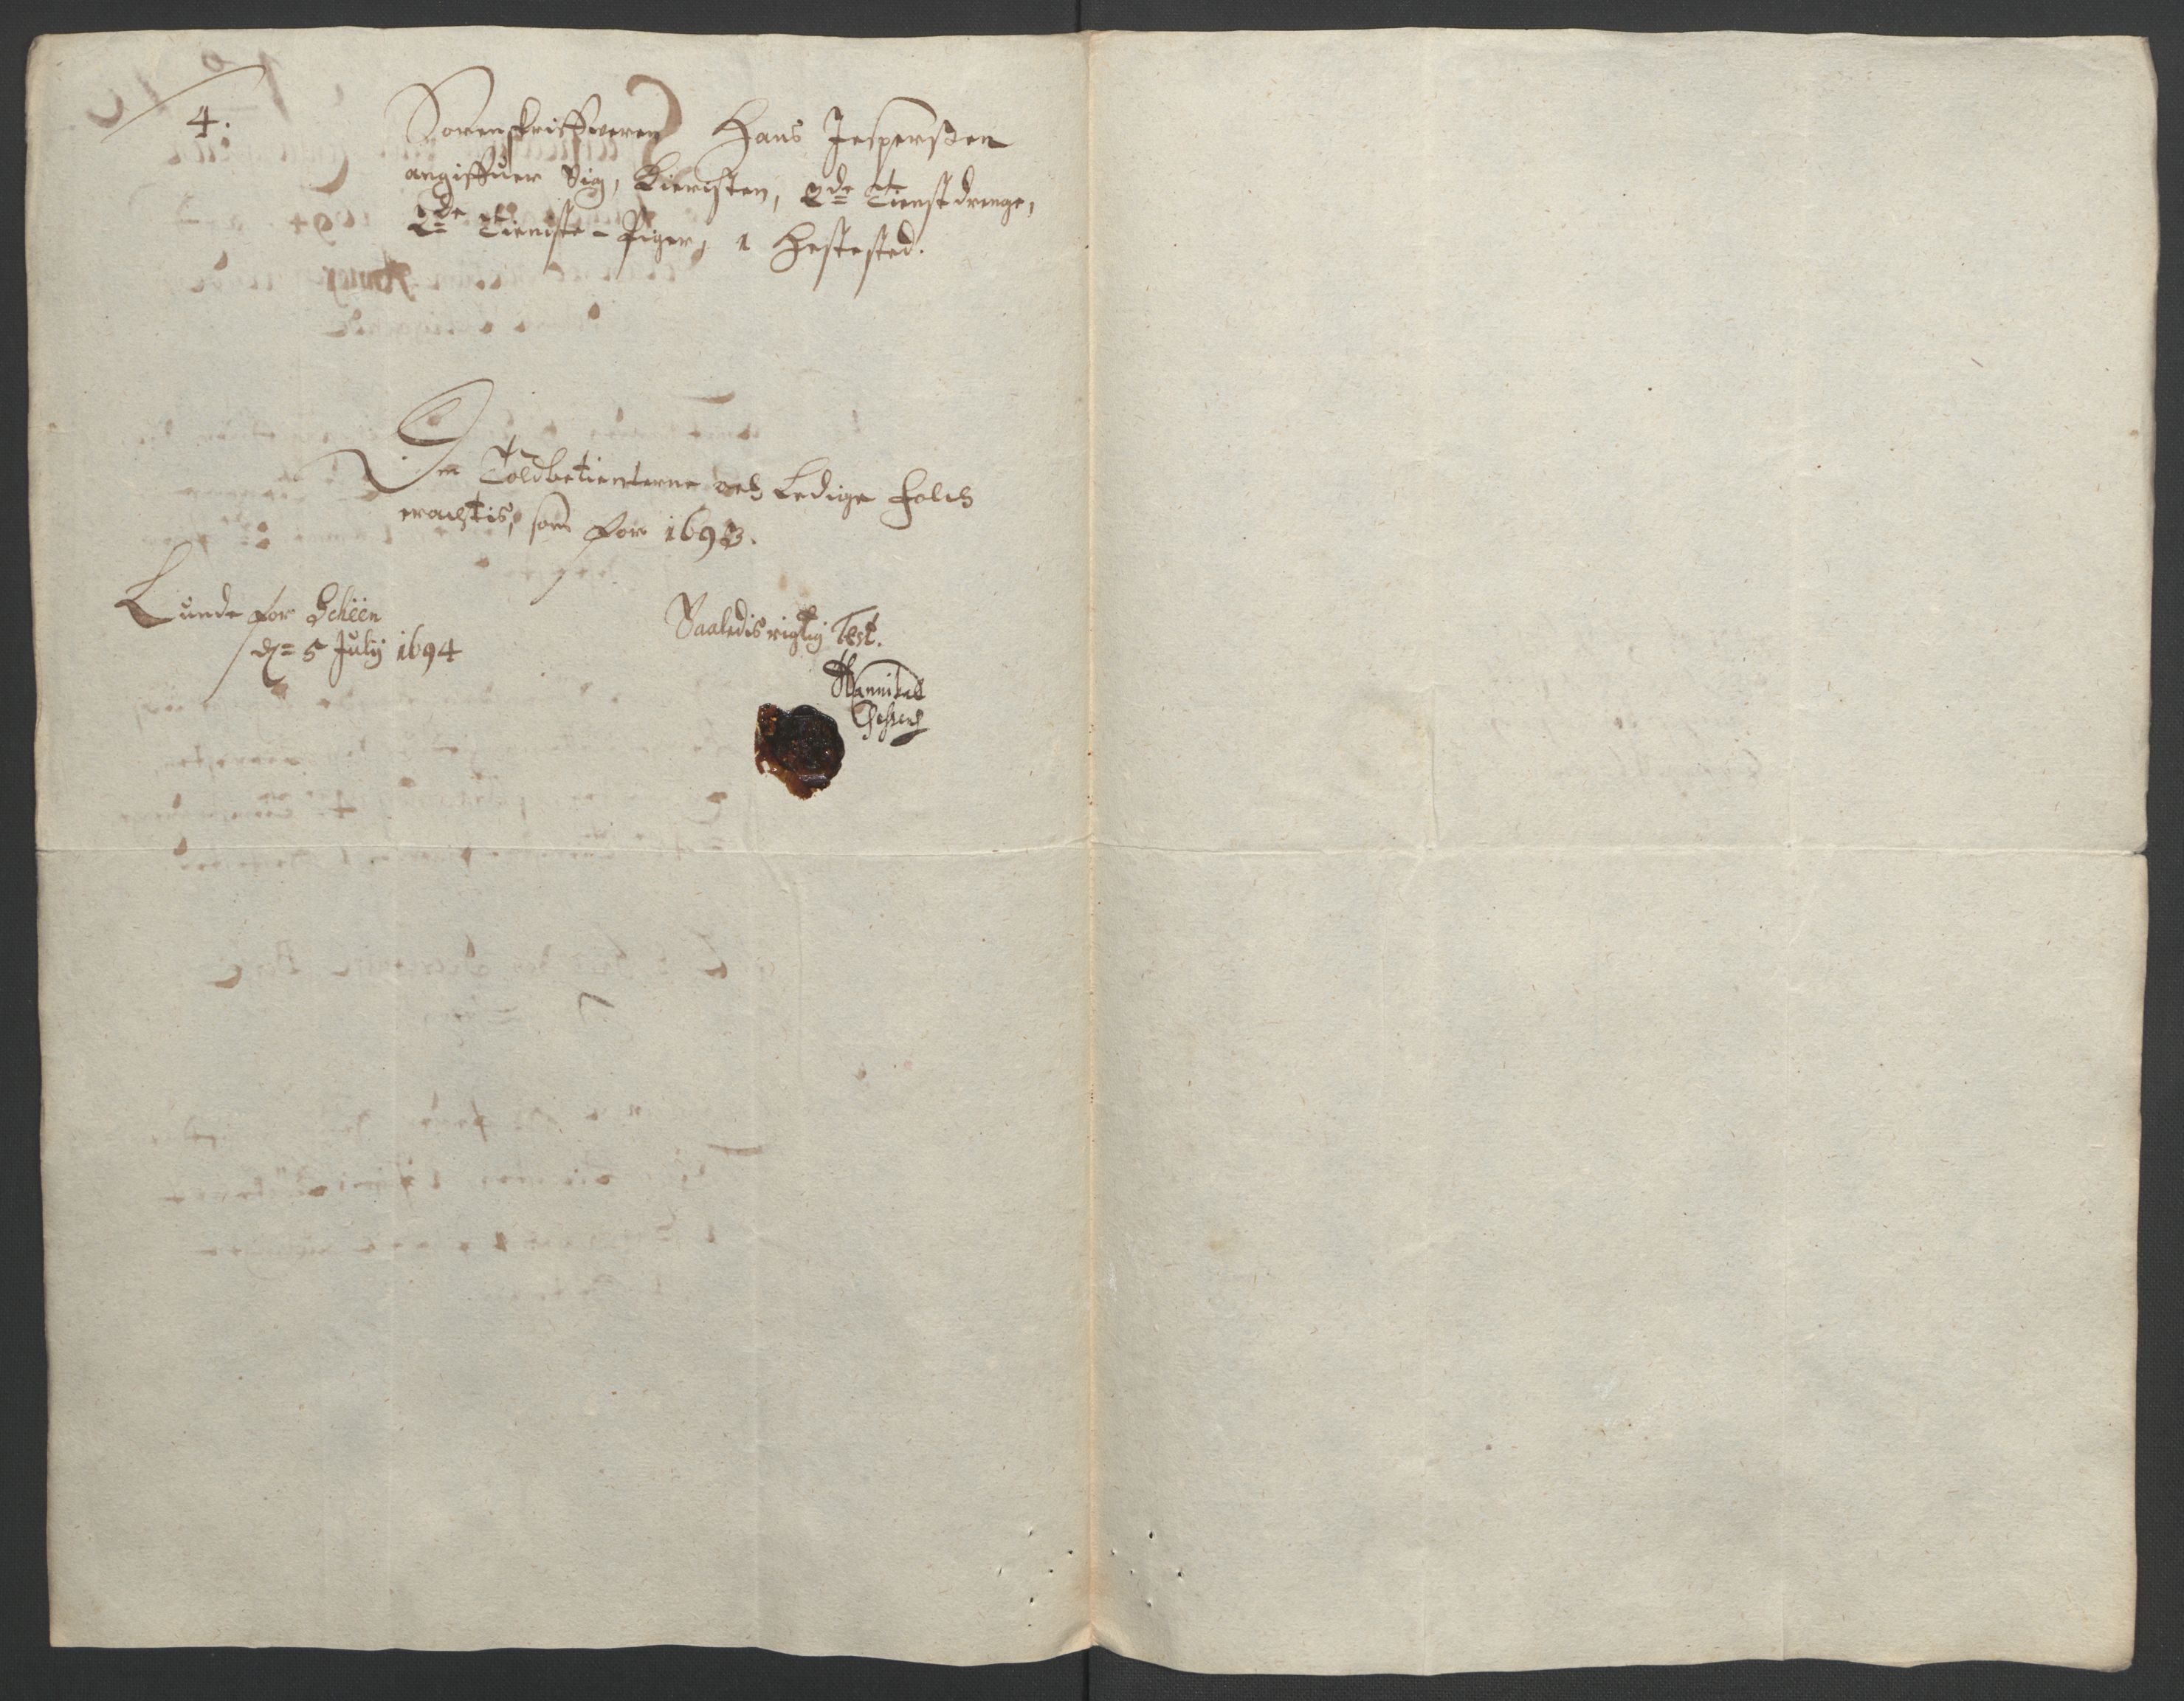 4.
Sorenskriffweren Hans Jesperßen
angiffuer Sig, Kieristen, 2de Tienstdrenge,
2de Tieniste-Piger, 1 Hestested.
Om Toldbetienterne och Ledige Folch
erachtis, som for 1693.
Lunde for Schéen
dn= 5 July 1694
Saaledis rigtig Test.
Hannibal